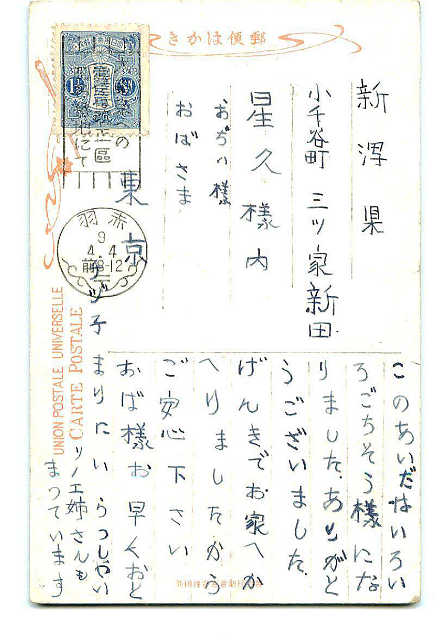 郵便はかき
新浮県
小千谷町 三ツ家新田
星久様内
おぢい様
おばさま
東京
ヅ子
このあいだはいろい
ろごちそう様にな
りました。ありがと
うございました。
げんきでお家へか
へりましたから
ご安心下さい
おば様お早くおと
まりにいらつしやい
ツノエ姉さんも
まつています
赤羽
9
4.4
前8-12
UNION POSTALE UNIVERSELLE
CARTE POSTALE